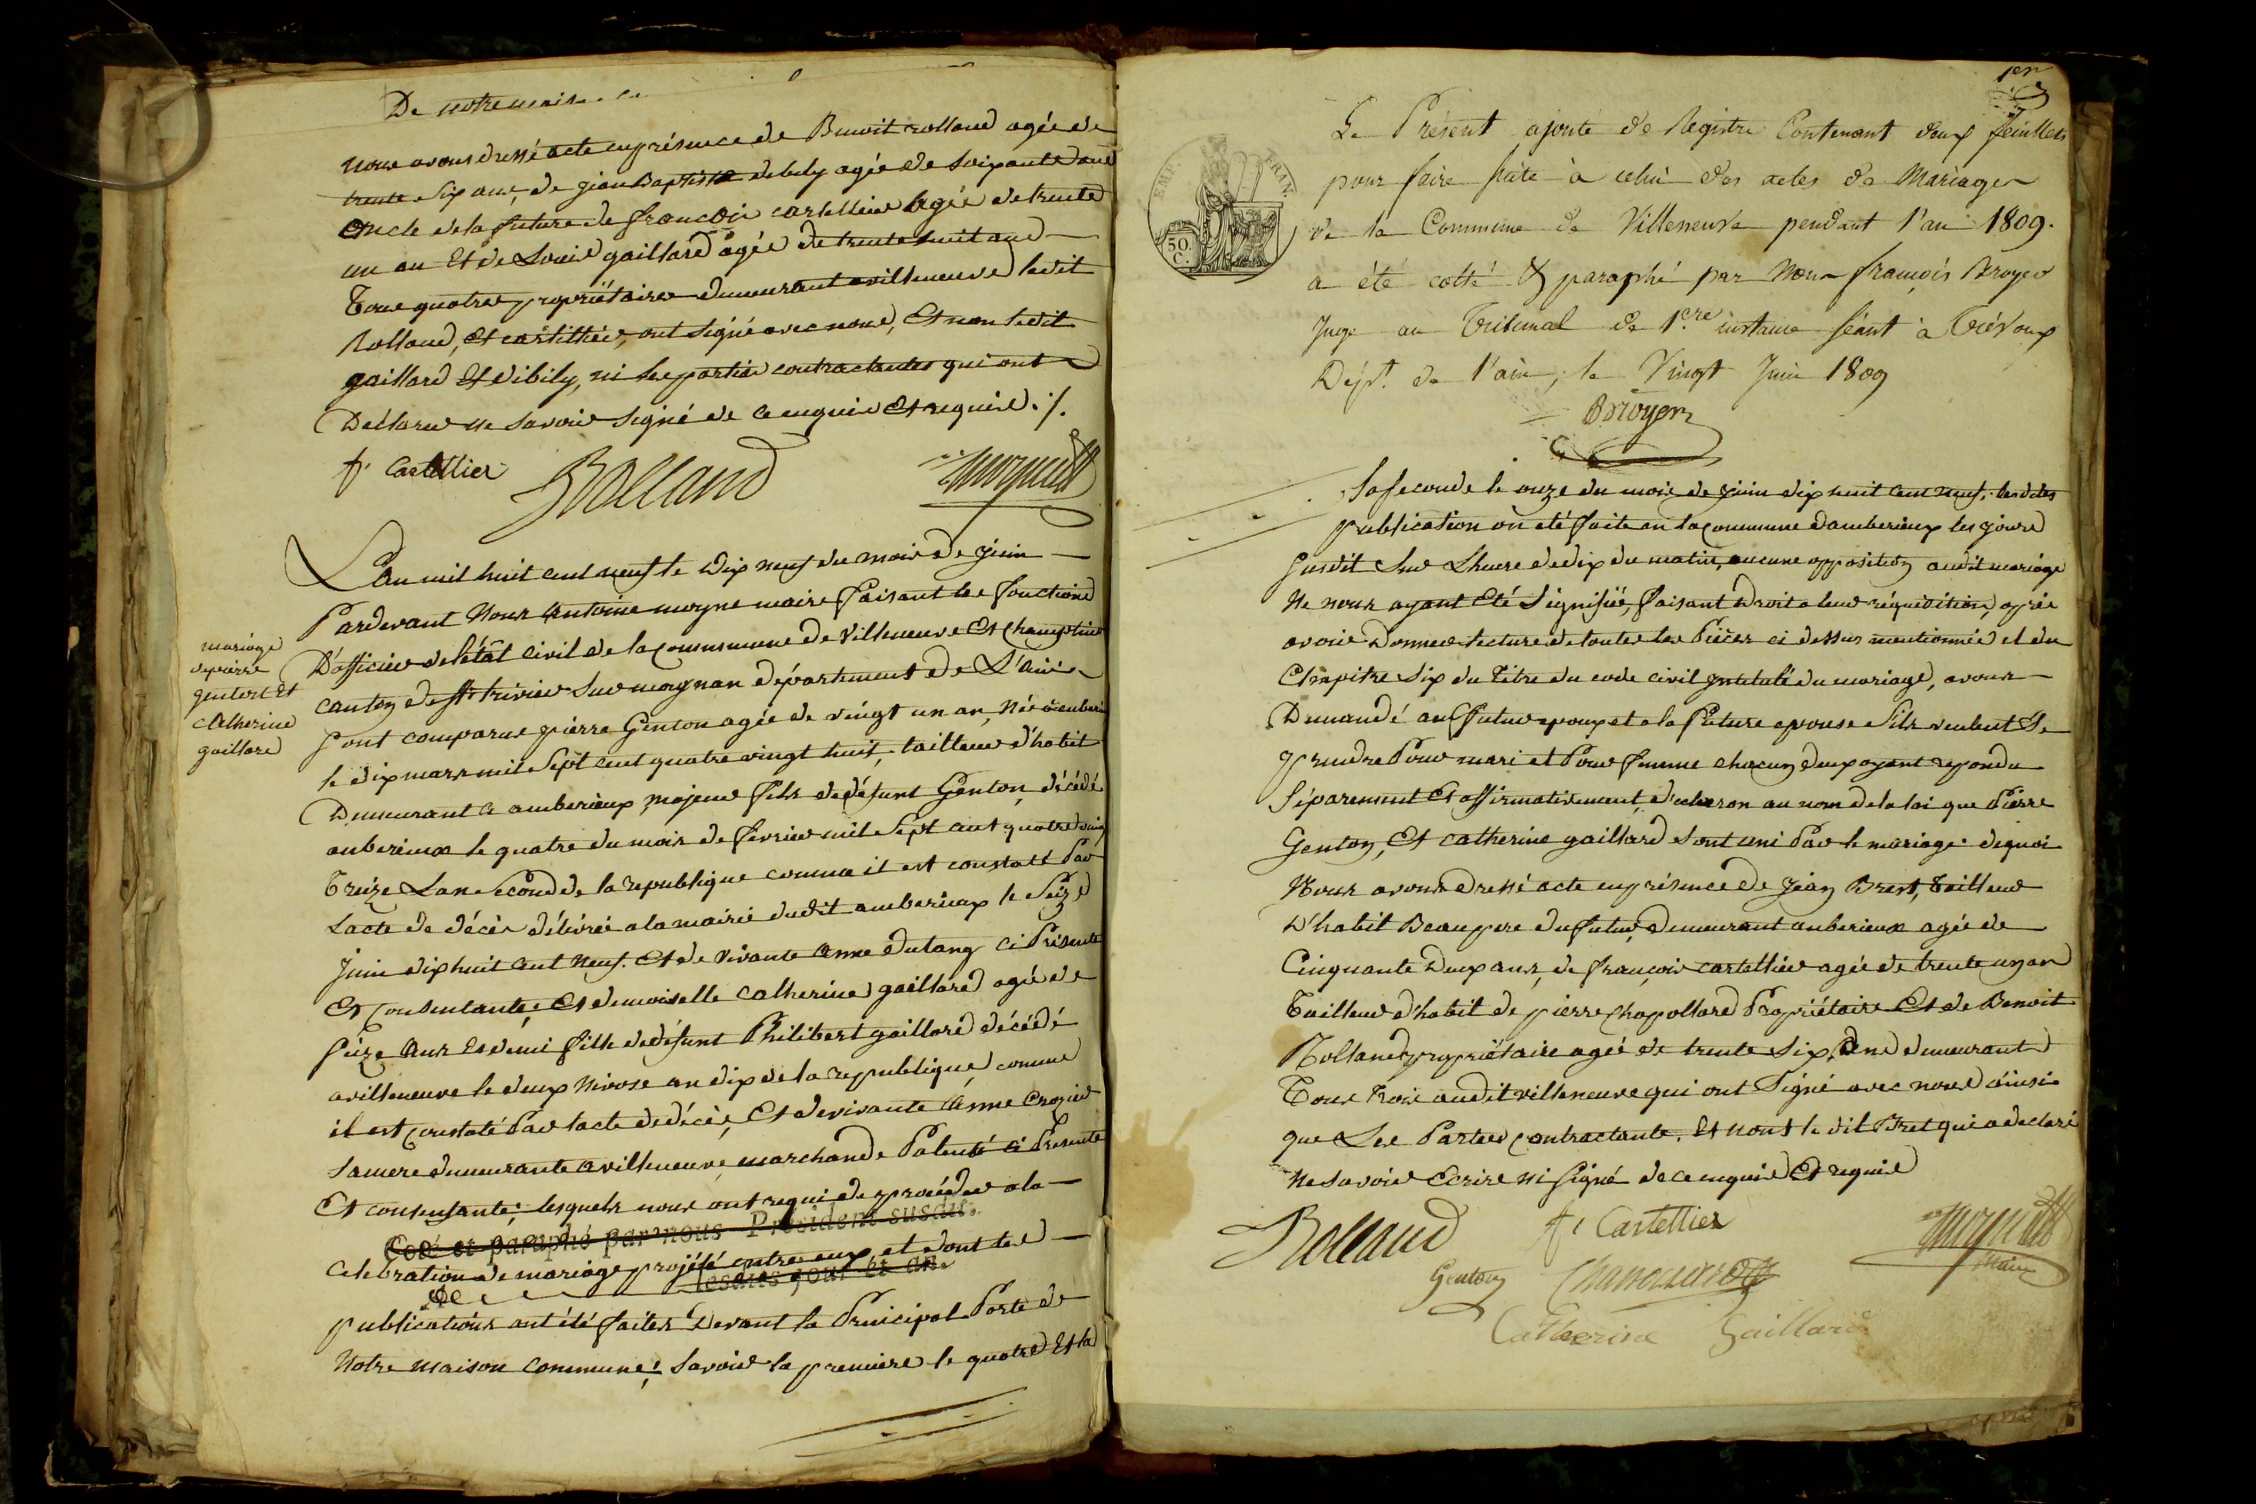 De notre
nous avons dressé acte en présence de Benoit rolland agée de
trente Six ans, de jean Baptiste debily agée de Soixante ans
oncle de la future de françois cartellier agée de trente
un an Et de Louis gaillard agée de trente huit ans
Tous quatre propriétaires demeurant a villeneuve ledit
Rolland, Et cartellier, ont signé avec nous, Et non ledit
gaillard Et dibily, ni les parties contractantes qui ont
Déclarer ne savoir signé de ce enquis Et requis ./.
fs Cartellier Rolland
L'an mil huit cent neuf le Dix neuf du mois de juin
Pardevant Nous Antoine moyne maire faisant les fonctions
D'officier de l'état civil de la commune de villeneuve Et champteins
canton de St trivier Sur moynan département de L'ain
Sont comparus pierre Genton agée de vingt un an, Né a amberi
le dix mars mil Sept cent quatre vingt huit, tailleur d'habit
Demeurant a amberieux, majeur fils de défunt Genton, décédé
amberieux le quatre du mois de fevrier mil Sept cent quatre vingt
Treize Lan Second de la republique comme il est constatt Par
Lacte de décès délivrée a la mairie dudit amberieux le Seize
Juin dix huit cent neuf. Et de vivante Anne dutang ci Présente
Et Consentante; Et demoiselle catherine gaillard agée de
Seize Ans Et demi fille de défunt Philibert gaillard décédé
a villeneuve le deux Nivose an dix de la republique, comme
il est constaté Par lacte de décès, Et de vivante Anne crozier
Sa mere demeurante a villeneuve, marchande Patenté ci Presente
Et consentante; lesquels nous ont requi de procéder a la
Coté et paraphé par nous Président susdit
célébration de mariage projété entre eux, et dont les
lesdits jour et an
publications ont été faites Devant la Principal Porte de
Notre maison commune; Savoir la premiere le quatre Et la
mariage
de pierre
genton Et
catherine
gaillard
1er
Le Présent ajouté de Registre Contenant deux feuillets
pour faire suite à celui des actes de Mariages
EMP. FRAN.
50. C.
de la Commune de Villeneuve pendant l'an 1809.
a été cotté & paraphé par Nous françois Broyer
Juge au Tribunal de 1ere instance séant à Trévoux
Dépt. de l'ain, le Vingt Juin 1809
Broyer
la seconde le onze du mois de juin dix huit cent neuf. les dites
publication on été faite en la commune d'amberieux les jours
Susdit Sur L'heure de dix du matin, aucune opposition audit mariage
Ne nous ayant Eté Signifié, faisant Droit a leur réquisition, après
avoir Donner lecture de toutes les Pièces ci dessus mentionnée et du
Chapitre Six du Titre du code civil intitulé du mariage, avons
Demandé au futur epoux et a la future epouse S'ils veulent Se
prendre Pour mari et Pour femme chacun d'eux ayant repondu
Séparement Et affirmativement, déclaron au nom de la loi que Pierre
Genton, Et catherine gaillard sont uni Par le mariage. de quoi
Nous avons dressé acte en présence de jean Bret, tailleur
D'habit Beau pere du futur, demeurant amberieux agée de
Cinquante Deux ans, de françois cartellier agée de trente un an
Tailleur d'habit de pierre chapollard Propriétaire Et de Benoit
Rolland propriétaire agée de trente Six, ans demeurant
Tous trois audit villeneuve qui ont Signé avec nous ainsi
que Les Parties contractante. Et nont le dit Bret qui a declaré
Ne savoir Ecrire ni signé de ce enquis Et requis
Rolland fs Cartellier
Genton maire
Catherine Gaillard